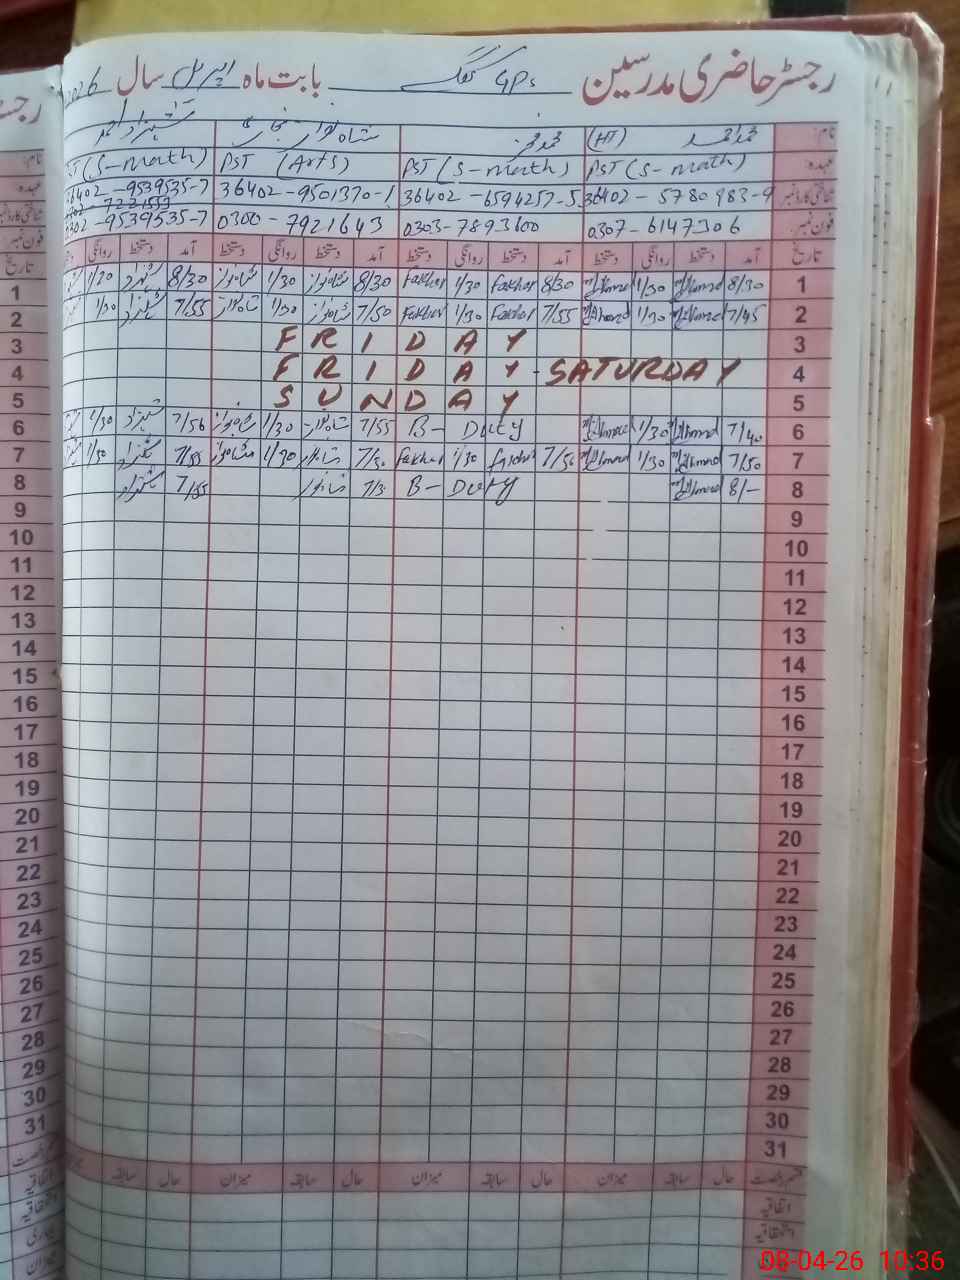 رجسٹر حاضری مدرسین GPS بابت ماہ اپریل سال 2026
نام: محمد احمد (HT) محمد فخر شاہ نواز بخاری شہزاد احمد
عہدہ PST (S-math) PST (S-math) PST (Arts) PST (S-math)
شناختی کارڈ نمبر 36402-5780983-9 36402-6594257-5 36402-9501370-1 36402-9539535-7
فون نمبر: 0307-6147306 0303-7893600 0300-7921643 0302-7221553 0302-9539535-7
تاریخ آمد دستخط روانگی دستخط آمد دستخط روانگی دستخط آمد دستخط روانگی دستخط آمد دستخط روانگی
1 8/30 M Ahmad 1/30 M Ahmad 8/30 Fakhar 1/30 Fakhar 8/30 شاہنواز 1/30 شاہنواز 8/30 شہزاد 1/30
2 7/45 M Ahmad 1/30 M Ahmad 7/55 Fakhar 1/30 Fakhar 7/50 شاہنواز 1/30 شاہنواز 7/55 شہزاد 1/30
3 FRIDAY
4 FRIDAY - SATURDAY
5 SUNDAY
6 7/40 M Ahmad 1/30 M Ahmad B- Duty 7/55 شاہنواز 1/30 شاہنواز 7/56 شہزاد 1/30
7 7/50 M Ahmad 1/30 M Ahmad 7/50 Fakhar 1/30 Fakhar 7/50 شاہنواز 1/30 شاہنواز 7/55 شہزاد 1/30
8 8/- M Ahmad B- Duty 7/5 شاہنواز 7/55 شہزاد
9
10
11
12
13
14
15
16
17
18
19
20
21
22
23
24
25
26
27
28
29
30
31
قسم رخصت حال سابقہ میزان حال سابقہ میزان حال سابقہ میزان حال سابقہ
اتفاقیہ
استحقاقیہ
08-04-26 10:36